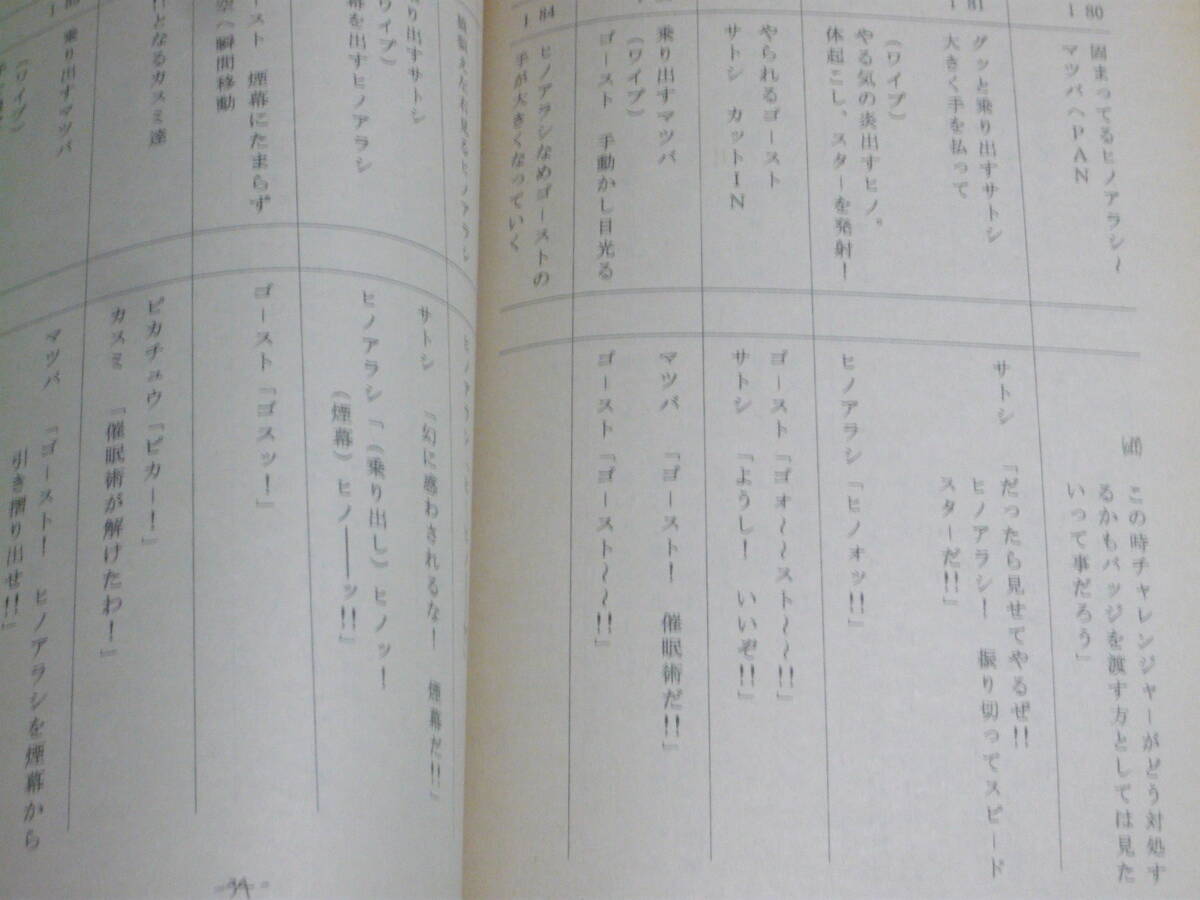 80
1
固まってるヒノアラシ～
マツバへPAN
(off)
この時チャレンジャーがどう対処す
るかもバッジを渡す方としては見た
いって事だろう」
81
1
グッと乗り出すサトシ
大きく手を払って
(ワイプ)
やる気の炎出すヒノ。
体起こし、スターを発射！
サトシ 「だったら見せてやるぜ!!
ヒノアラシ！ 振り切ってスピード
スターだ!!」
ヒノアラシ「ヒノォッ!!」
やられるゴースト
サトシ カットIN
ゴースト「ゴォ～～スト～～!!」
サトシ 「ようし！ いいぞ!!」
乗り出すマツバ
(ワイプ)
ゴースト 手動かし目光る
マツバ 「ゴースト！ 催眠術だ!!」
ゴースト「ゴースト～～!!」
84
1
ヒノアラシなめゴーストの
手が大きくなっていく
り出すサトシ
ワイプ)
幕を出すヒノアラシ
サトシ 「幻に惑わされるな！ 煙幕だ!!」
ヒノアラシ「(乗り出し) ヒノッ！
(煙幕) ヒノ――ッ!!」
ースト 煙幕にたまらず
空へ瞬間移動
ゴースト「ゴスッ！」
!!となるカスミ達
ピカチュウ「ピカー！」
カスミ 「催眠術が解けたわ！」
1
乗り出すマツバ
(ワイプ)
マツバ 「ゴースト！ ヒノアラシを煙幕から
引き摺り出せ!!」
34